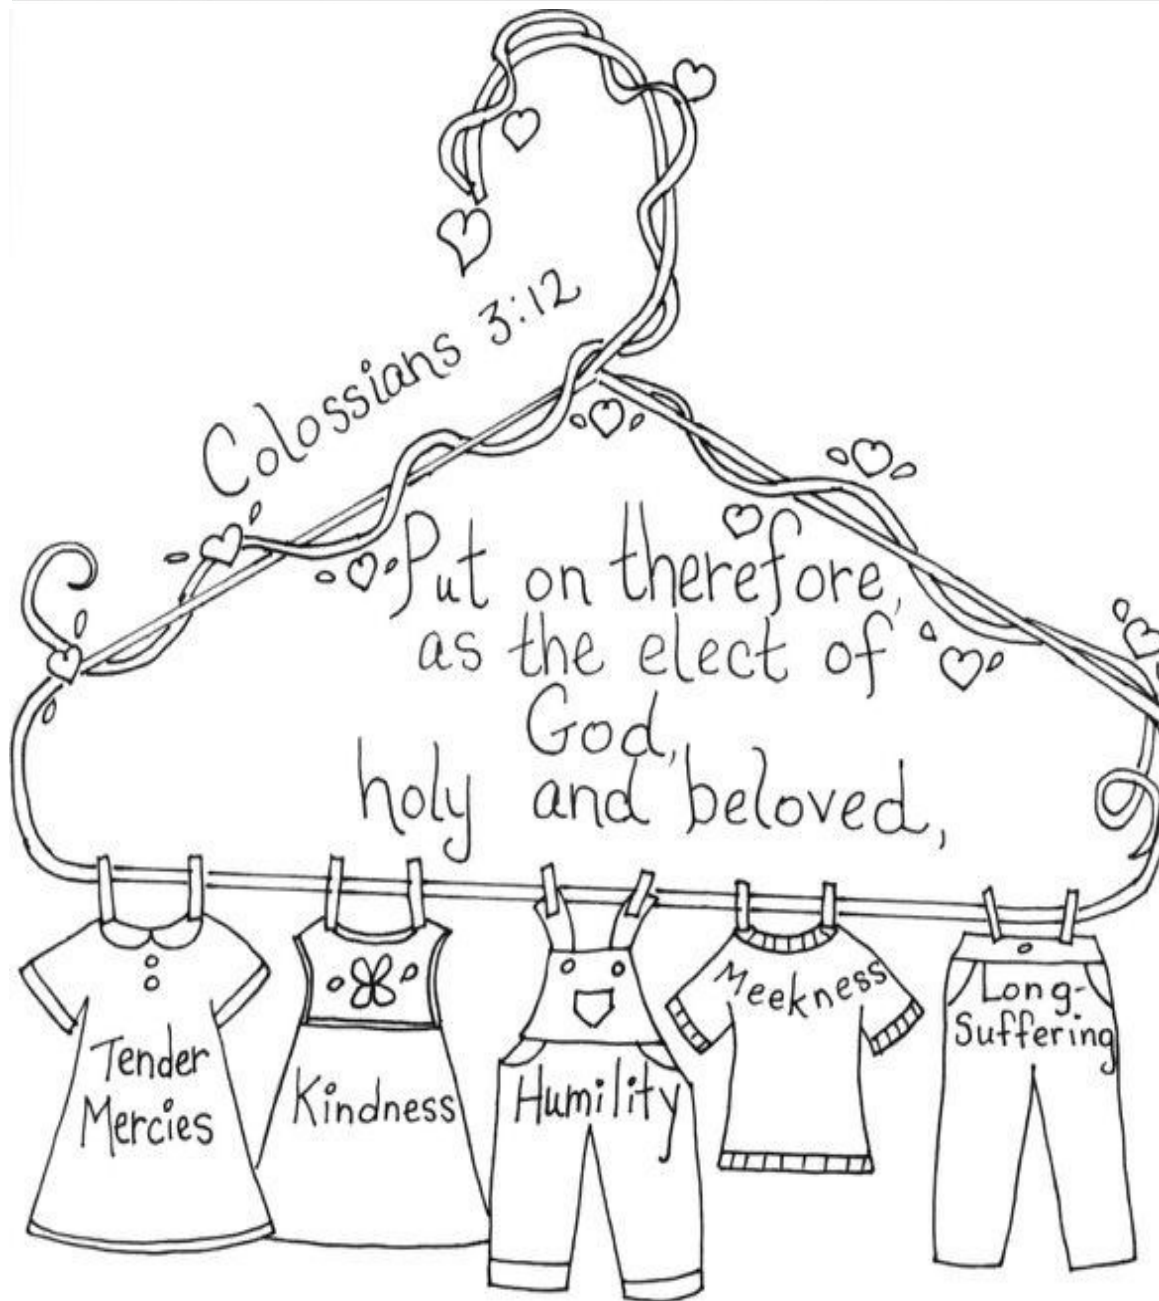 Colossians 3:12
Put on therefore,
as the elect of
God,
holy and beloved,
Tender
Mercies
Kindness
Humility
Meekness
Long-
Suffering